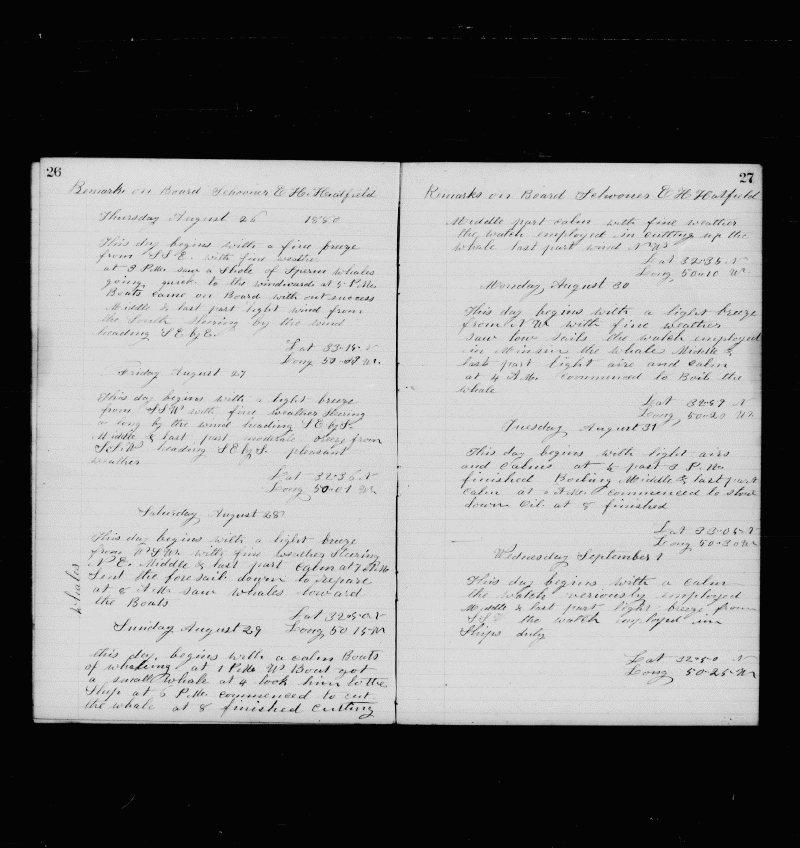 26
Remarks on Board Schooner E H Hatfield
Thursday August 26 1880
This day begins with a fine breeze
from S S E. with fine weather
at 3 P.M. saw a Shole of Sperm whales
going quick to the windward at 5 P.M.
Boats came on Board with out success
Middle & last part light wind from
the South Steering by the wind
heading S E by E.
Lat 33-15 N
Long 50-28 W.
Friday August 27
This day begins with a light breeze
from S S W with fine weather Stering
a long by the wind heading S E by S.
Middle & last part moderate breeze from
S.S.W heading S E by S. pleasant
weather
Lat 32-36 N
Long 50-01 W
Saturday August 28
This day begins with a light breeze
from W S W. with fine weather Steering
N E. Middle & last part Calm at 7 A.M.
Sent the foresail down to repare
at 8 A M saw whales loward
the Boats
Whales
Lat 32-50 N
Sunday August 29 Long 50 15 W
this day begins with a calm Boats
of whaleing at 1 P.M. W Boat got
a small whale at 4 took him to the
Ship at 6 P.M. commenced to cut
the whale at 8 finished cutting
27
Remarks on Board Schooner E H Hatfield
Middle part calm with fine weather
the watch employed in cutting up the
whale last part wind N W
Lat 32-35 N
Long 50-10 W
Monday August 30
This day begins with a light breeze
from N W with fine weather
saw low sails the watch employed
in Minsin the whale Middle &
last part light airs and calm
at 4 A.M. commenced to Boil the
whale
Lat 32-59 N
Long 50-20 W
Tuesday August 31
This day begins with light airs
and Calms at ½ past 3 P.M.
finished Boiling Middle & last part
Calm at A.M. commenced to stow
down Oil at 8 finished
Lat 33-05 N
Long 50-30 W
Wednesday September 1
This day begins with a calm
the watch veriously employed
Middle & last part light breeze from
the watch employed in
Ships duty
Lat 32-50 N
Long 50-25 W